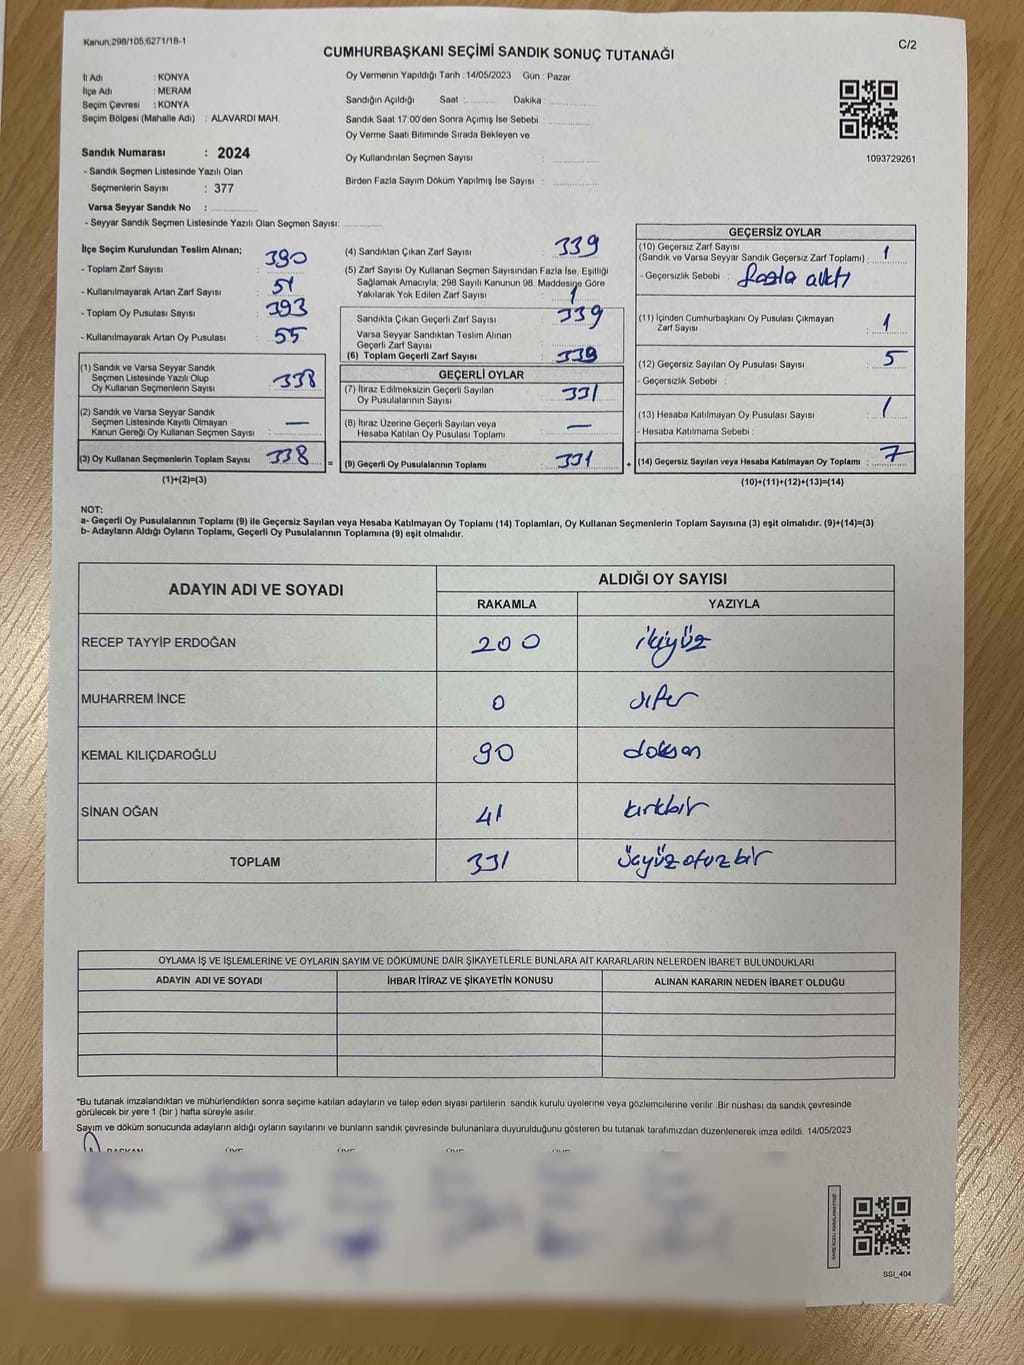 Kanun;298/105;6271/18-1
C/2
CUMHURBAŞKANI SEÇİMİ SANDIK SONUÇ TUTANAĞI
İl Adı : KONYA
İlçe Adı : MERAM
Seçim Çevresi : KONYA
Seçim Bölgesi (Mahalle Adı) : ALAVARDI MAH.
Oy Vermenin Yapıldığı Tarih : 14/05/2023 Gün : Pazar
Sandığın Açıldığı Saat : Dakika
Sandık Saat 17.00'den Sonra Açımış İse Sebebi :
Oy Verme Saati Bitiminde Sırada Bekleyen ve
Oy Kullandırılan Seçmen Sayısı :
Birden Fazla Sayım Döküm Yapılmış İse Sayısı :
1093729261
Sandık Numarası : 2024
- Sandık Seçmen Listesinde Yazılı Olan
Seçmenlerin Sayısı : 377
Varsa Seyyar Sandık No :
- Seyyar Sandık Seçmen Listesinde Yazılı Olan Seçmen Sayısı:
İlçe Seçim Kurulundan Teslim Alınan;
- Toplam Zarf Sayısı : 390
- Kullanılmayarak Artan Zarf Sayısı : 51
- Toplam Oy Pusulası Sayısı : 393
- Kullanılmayarak Artan Oy Pusulası : 55
(1) Sandık ve Varsa Seyyar Sandık
Seçmen Listesinde Yazılı Olup
Oy Kullanan Seçmenlerin Sayısı : 338
(2) Sandık ve Varsa Seyyar Sandık
Seçmen Listesinde Kayıtlı Olmayan
Kanun Gereği Oy Kullanan Seçmen Sayısı : —
(3) Oy Kullanan Seçmenlerin Toplam Sayısı : 338
(1)+(2)=(3)
(4) Sandıktan Çıkan Zarf Sayısı : 339
(5) Zarf Sayısı Oy Kullanan Seçmen Sayısından Fazla İse, Eşitliği
Sağlamak Amacıyla; 298 Sayılı Kanunun 98. Maddesine Göre
Yakılarak Yok Edilen Zarf Sayısı : 1
Sandıkta Çıkan Geçerli Zarf Sayısı : 339
Varsa Seyyar Sandıktan Teslim Alınan
Geçerli Zarf Sayısı :
(6) Toplam Geçerli Zarf Sayısı : 339
GEÇERLİ OYLAR
(7) İtiraz Edilmeksizin Geçerli Sayılan
Oy Pusulalarının Sayısı : 331
(8) İtiraz Üzerine Geçerli Sayılan veya
Hesaba Katılan Oy Pusulası Toplamı : —
= (9) Geçerli Oy Pusulalarının Toplamı : 331
GEÇERSİZ OYLAR
(10) Geçersiz Zarf Sayısı
(Sandık ve Varsa Seyyar Sandık Geçersiz Zarf Toplamı) : 1
- Geçersizlik Sebebi : fazla çıktı
(11) İçinden Cumhurbaşkanı Oy Pusulası Çıkmayan
Zarf Sayısı : 1
(12) Geçersiz Sayılan Oy Pusulası Sayısı : 5
- Geçersizlik Sebebi :
(13) Hesaba Katılmayan Oy Pusulası Sayısı : 1
- Hesaba Katılmama Sebebi :
+ (14) Geçersiz Sayılan veya Hesaba Katılmayan Oy Toplamı : 7
(10)+(11)+(12)+(13)=(14)
NOT:
a- Geçerli Oy Pusulalarının Toplamı (9) ile Geçersiz Sayılan veya Hesaba Katılmayan Oy Toplamı (14) Toplamları, Oy Kullanan Seçmenlerin Toplam Sayısına (3) eşit olmalıdır. (9)+(14)=(3)
b- Adayların Aldığı Oyların Toplamı, Geçerli Oy Pusulalarının Toplamına (9) eşit olmalıdır.
ADAYIN ADI VE SOYADI
ALDIĞI OY SAYISI
RAKAMLA YAZIYLA
RECEP TAYYİP ERDOĞAN 200 ikiyüz
MUHARREM İNCE 0 sıfır
KEMAL KILIÇDAROĞLU 90 doksan
SİNAN OĞAN 41 kırkbir
TOPLAM 331 üçyüzotuzbir
OYLAMA İŞ VE İŞLEMLERİNE VE OYLARIN SAYIM VE DÖKÜMÜNE DAİR ŞİKAYETLERLE BUNLARA AİT KARARLARIN NELERDEN İBARET BULUNDUKLARI
ADAYIN ADI VE SOYADI İHBAR İTİRAZ VE ŞİKAYETİN KONUSU ALINAN KARARIN NEDEN İBARET OLDUĞU
*Bu tutanak imzalandıktan ve mühürlendikten sonra seçime katılan adayların ve talep eden siyasi partilerin sandık kurulu üyelerine veya gözlemcilerine verilir. Bir nüshası da sandık çevresinde
görülecek bir yere 1 (bir) hafta süreyle asılır.
Sayım ve döküm sonucunda adayların aldığı oyların sayılarını ve bunların sandık çevresinde bulunanlara duyurulduğunu gösteren bu tutanak tarafımızdan düzenlenerek imza edildi. 14/05/2023
BAŞKAN ÜYE ÜYE ÜYE ÜYE ÜYE
SSI_404